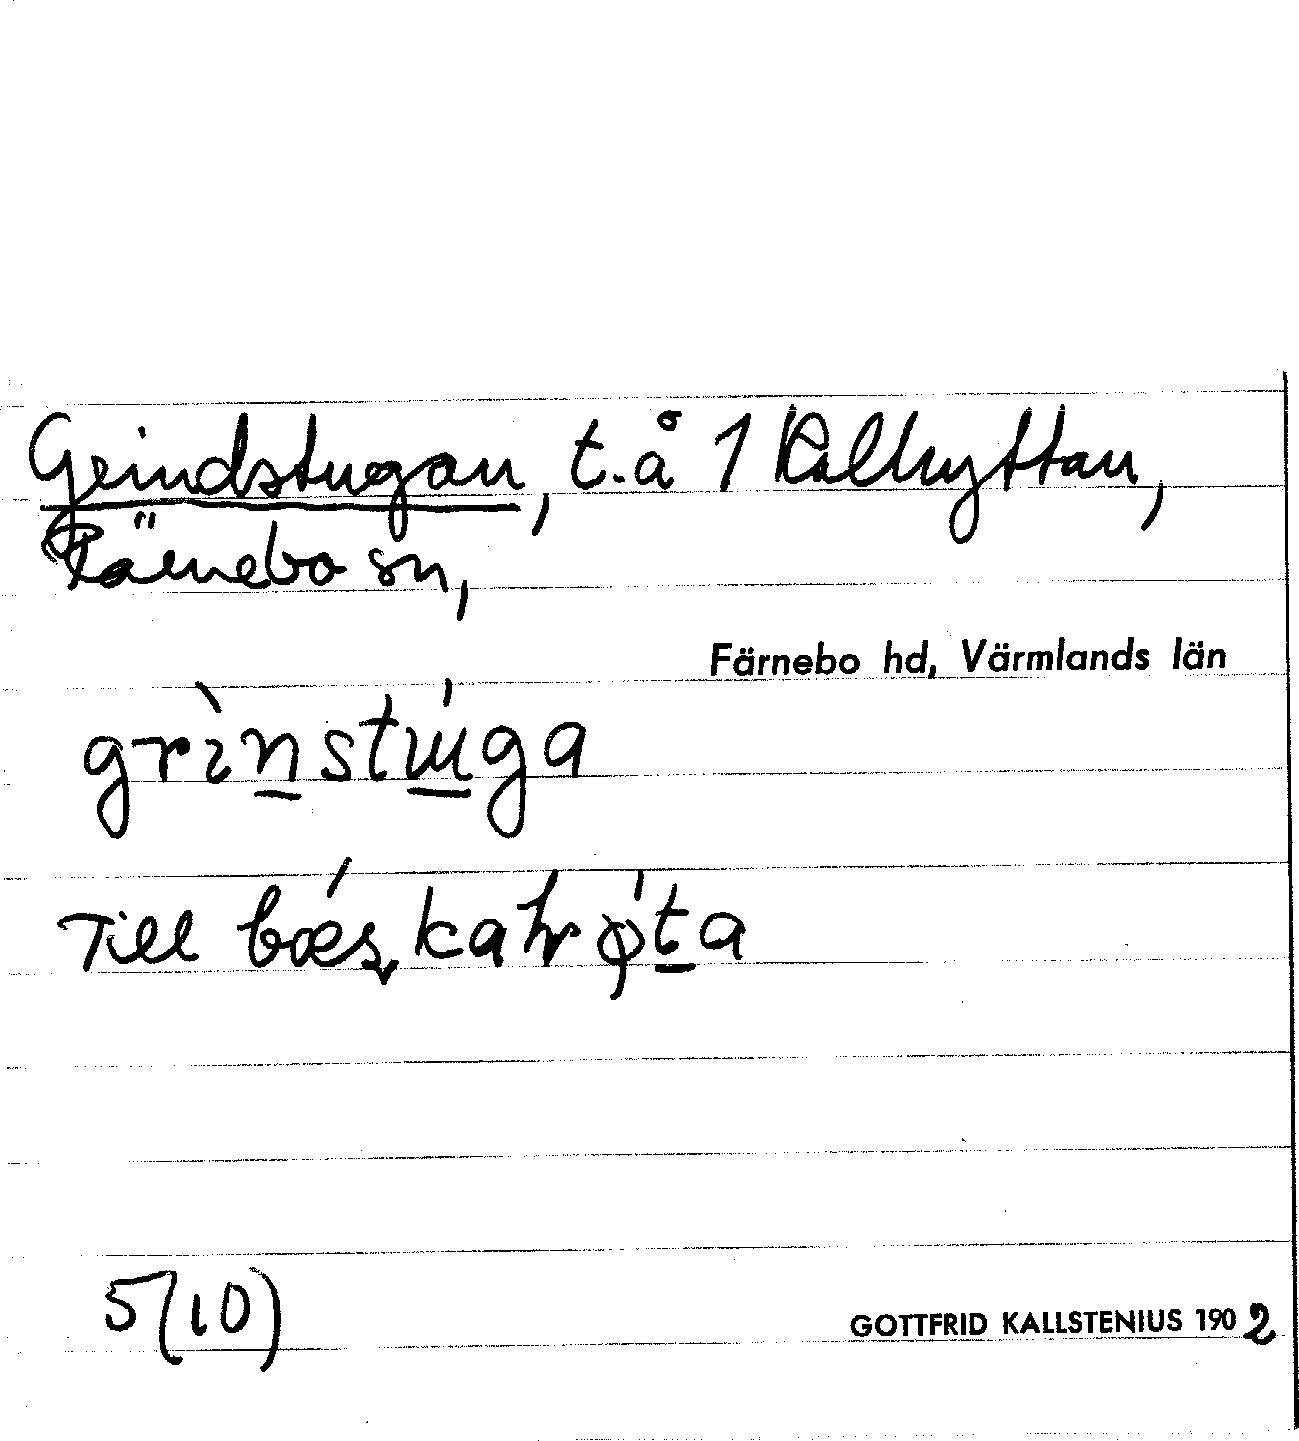 Grindstugan, t. å 1 Kalhyttan,
Färnebo sn,
Färnebo hd, Värmlands län
grìnstúga
Till
5(10)
GOTTFRID KALLSTENIUS 1902